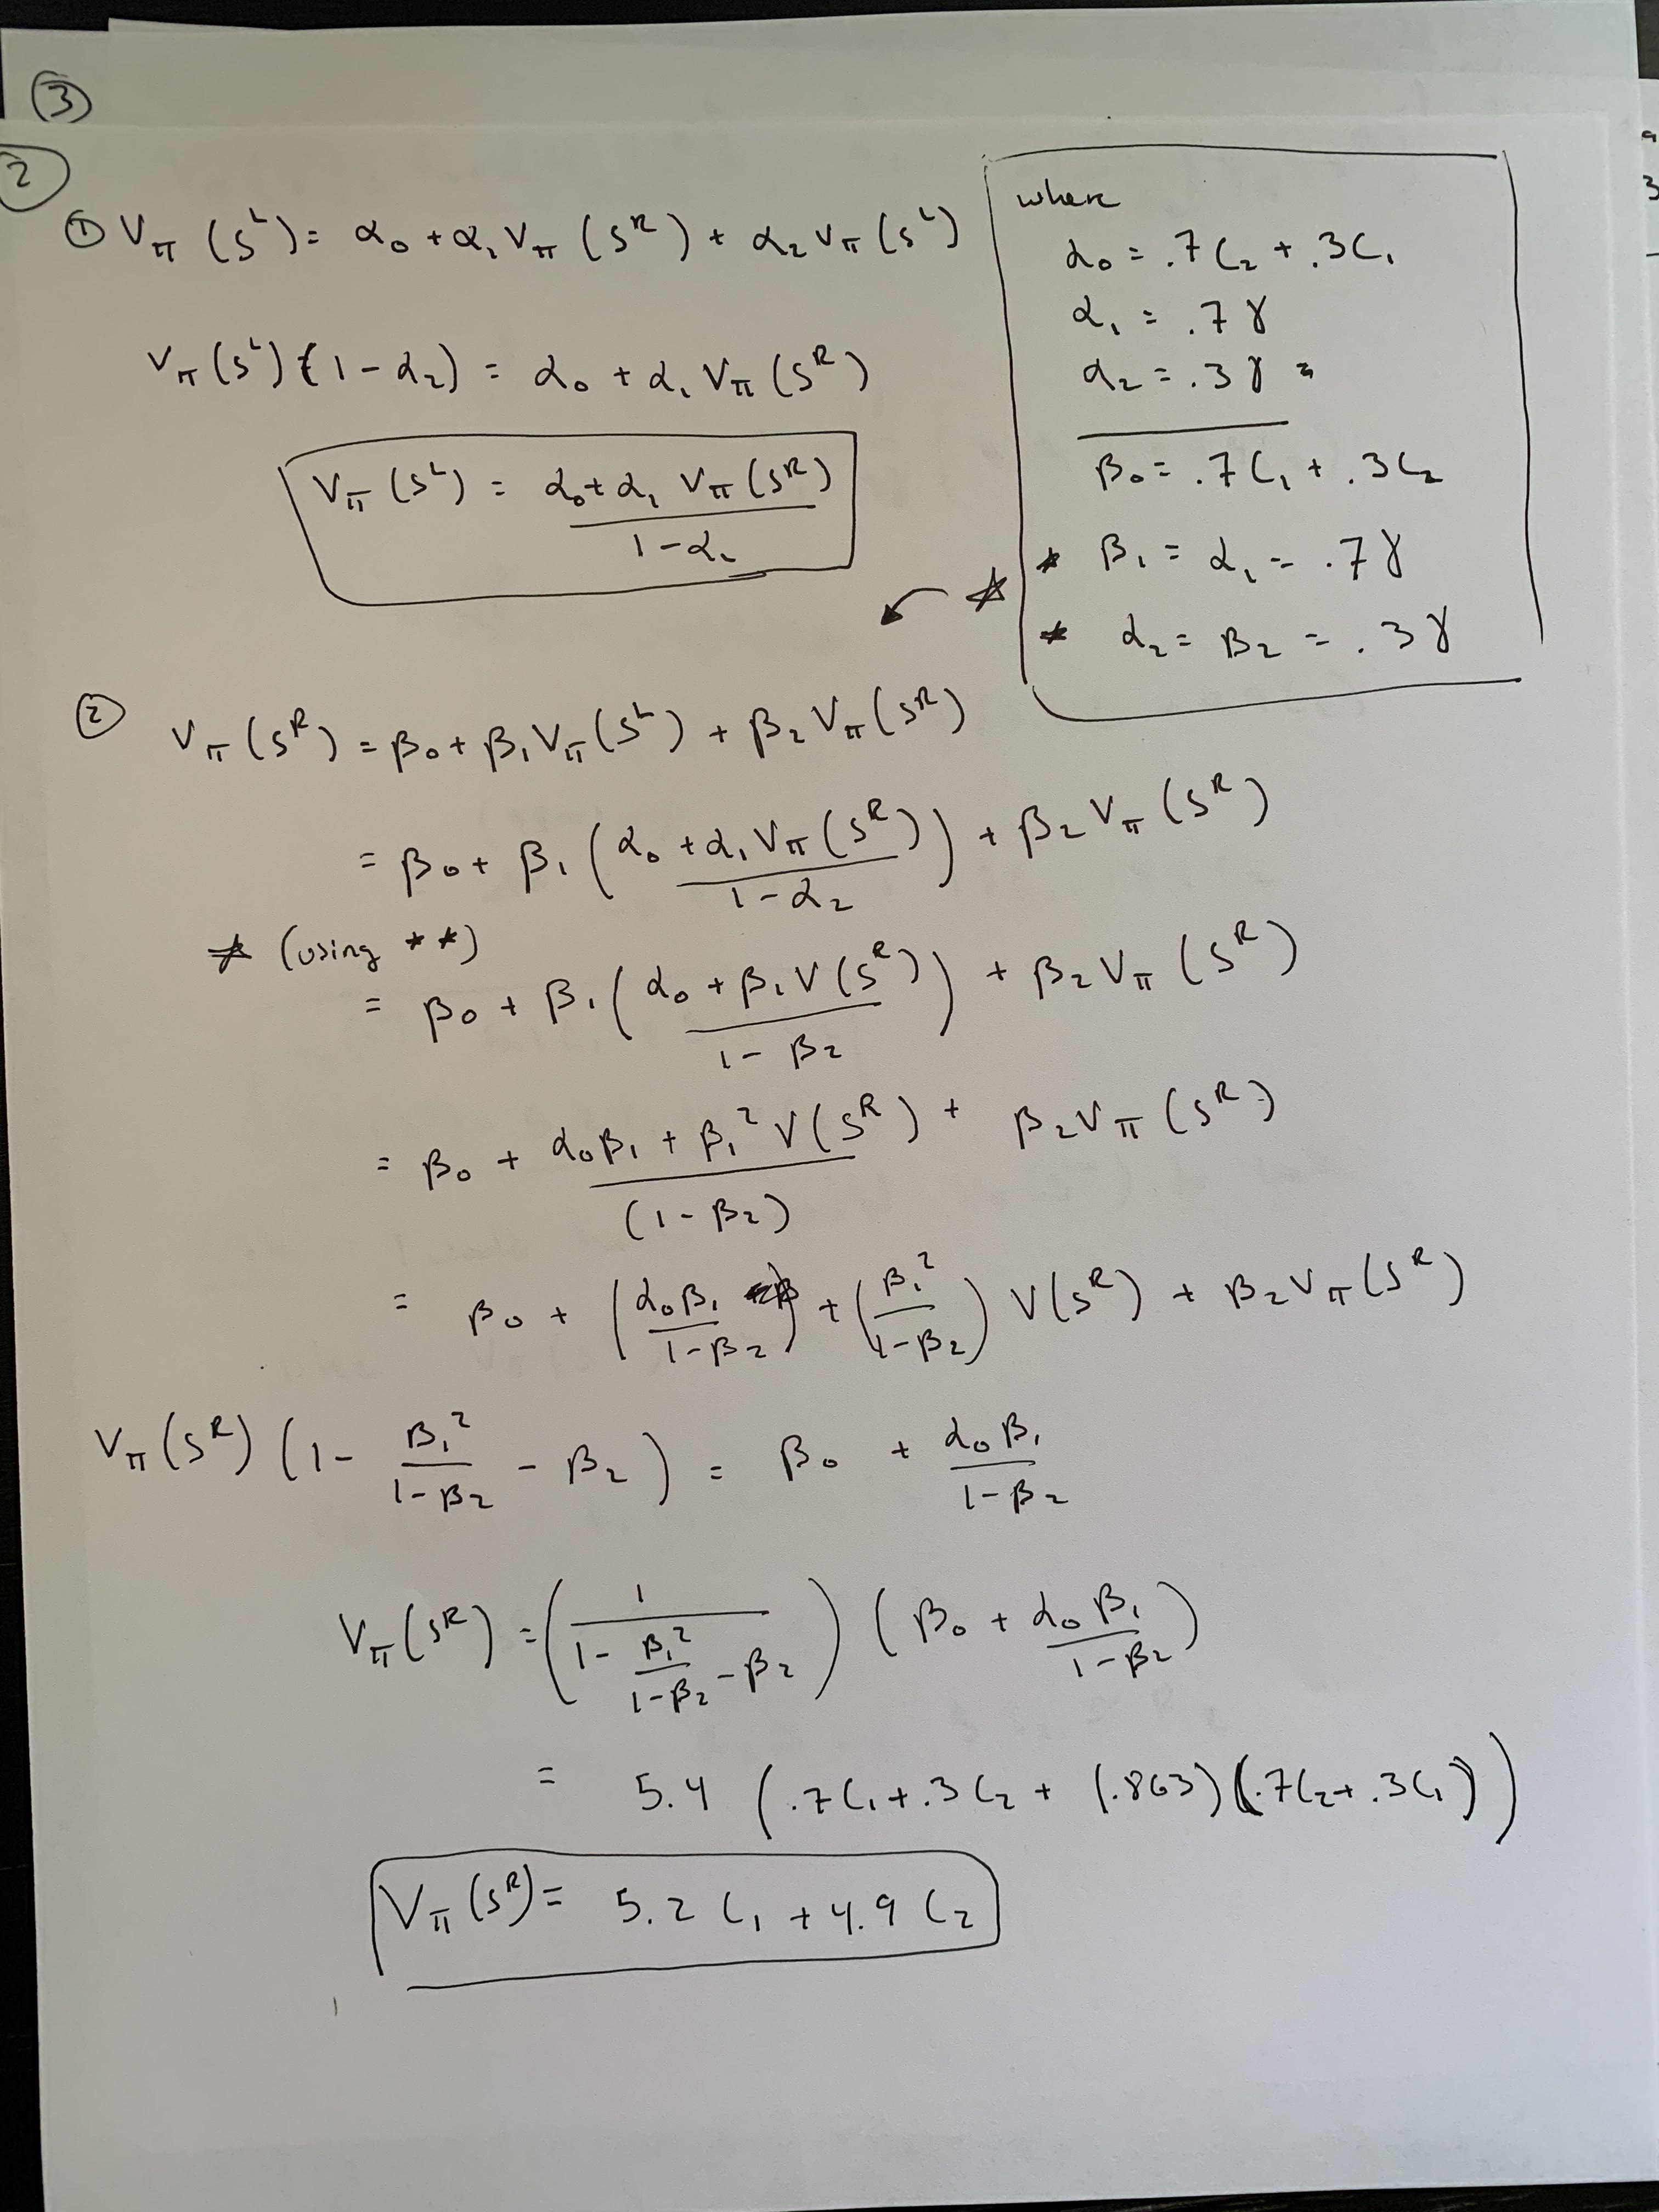 ③
②
① Vπ(Sᴸ) = α₀ + α₁Vπ(Sᴿ) + α₂Vπ(Sᴸ)
Vπ(Sᴸ)(1 - α₂) = α₀ + α₁Vπ(Sᴿ)
Vπ(Sᴸ) = (α₀ + α₁ Vπ(Sᴿ)) / (1 - α₂)
where
α₀ = .7C₂ + .3C₁
α₁ = .7γ
α₂ = .3γ
β₀ = .7C₁ + .3C₂
* β₁ = α₁ = .7γ
* α₂ = β₂ = .3γ
☆
② Vπ(Sᴿ) = β₀ + β₁Vπ(Sᴸ) + β₂Vπ(Sᴿ)
= β₀ + β₁((α₀ + α₁Vπ(Sᴿ)) / (1 - α₂)) + β₂Vπ(Sᴿ)
☆ (using **)
= β₀ + β₁((α₀ + β₁V(Sᴿ)) / (1 - β₂)) + β₂Vπ(Sᴿ)
= β₀ + (α₀β₁ + β₁²V(Sᴿ)) / (1 - β₂) + β₂Vπ(Sᴿ)
= β₀ + (α₀β₁ / (1 - β₂)) + (β₁² / (1 - β₂)) V(Sᴿ) + β₂Vπ(Sᴿ)
Vπ(Sᴿ)(1 - β₁² / (1 - β₂) - β₂) = β₀ + α₀β₁ / (1 - β₂)
Vπ(Sᴿ) = (1 / (1 - β₁² / (1 - β₂) - β₂)) (β₀ + α₀β₁ / (1 - β₂))
= 5.4 (.7C₁ + .3C₂ + (.863)(.7C₂ + .3C₁))
Vπ(Sᴿ) = 5.2 C₁ + 4.9 C₂